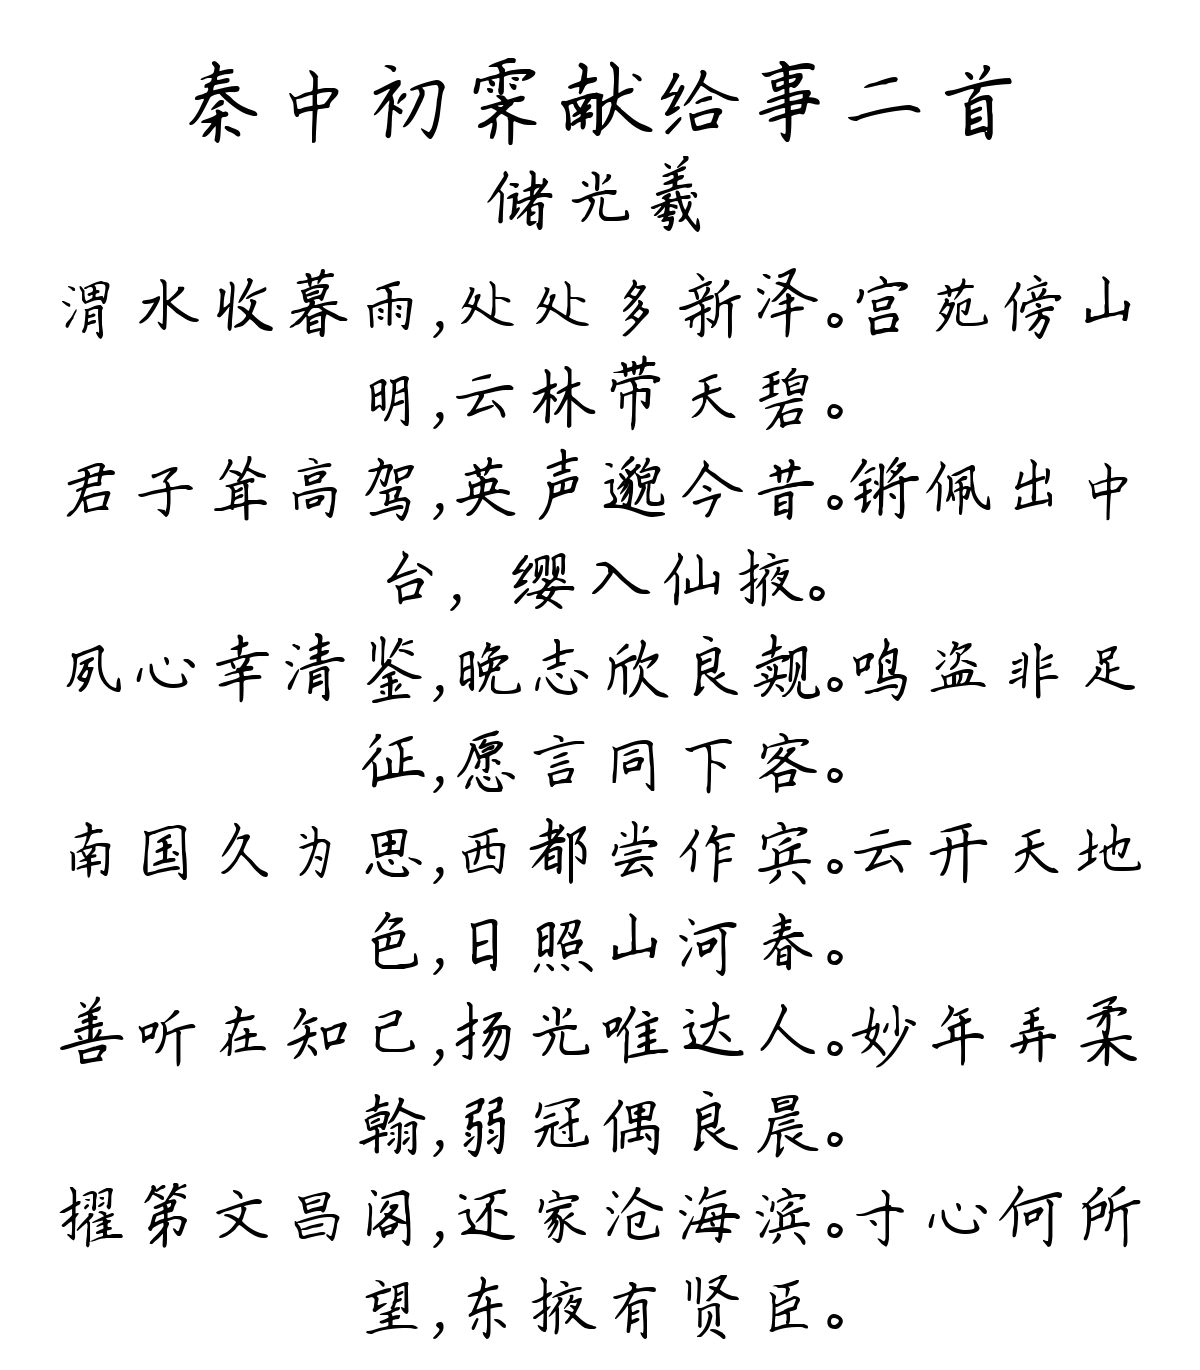 秦中初霁献给事二首
储光羲
渭水收暮雨,处处多新泽。宫苑傍山
明,云林带天碧。
君子耸高驾,英声邈今昔。锵佩出中
台，缨入仙掖。
夙心幸清鉴,晚志欣良觌。鸣盗非足
征,愿言同下客。
南国久为思,西都尝作宾。云开天地
色,日照山河春。
善听在知己,扬光唯达人。妙年弄柔
翰,弱冠偶良晨。
擢第文昌阁,还家沧海滨。寸心何所
望,东掖有贤臣。